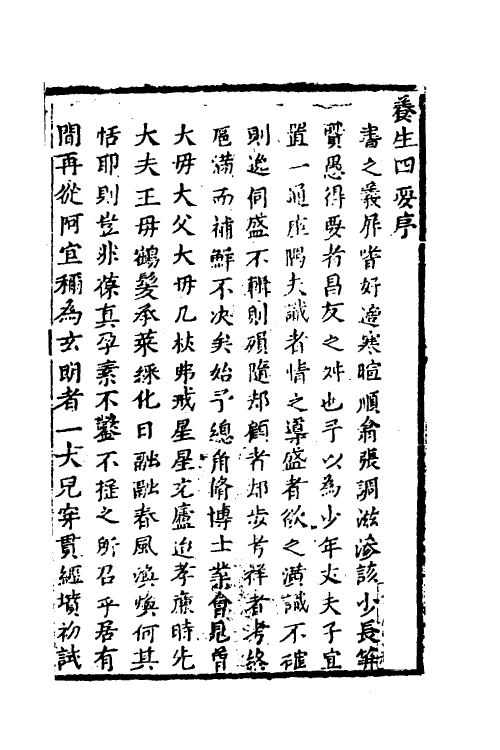 養生四要序
書之義雁皆好適寒暄順翕張調滋滲該少長箅
賢愚得要者昌友之也予以為少年丈夫子宜
置一通座隅夫識者情之導盛者欲之潢識不確
則逸伺盛不辨則殞隨却顧者却步考祥者考終
巵滿而補鮮不决矣始予總角脩博士業會見曾
大毋大父大毋几杖弗戒星星充廬迨孝廉時先
大夫王毋鶴髮承萊綵化日融融春風渙煥何其
恬耶則豈非葆真孕素不鑿不挺之所召乎居有
間再從阿宜稱為玄朗者一大兄穿貫經墳初試